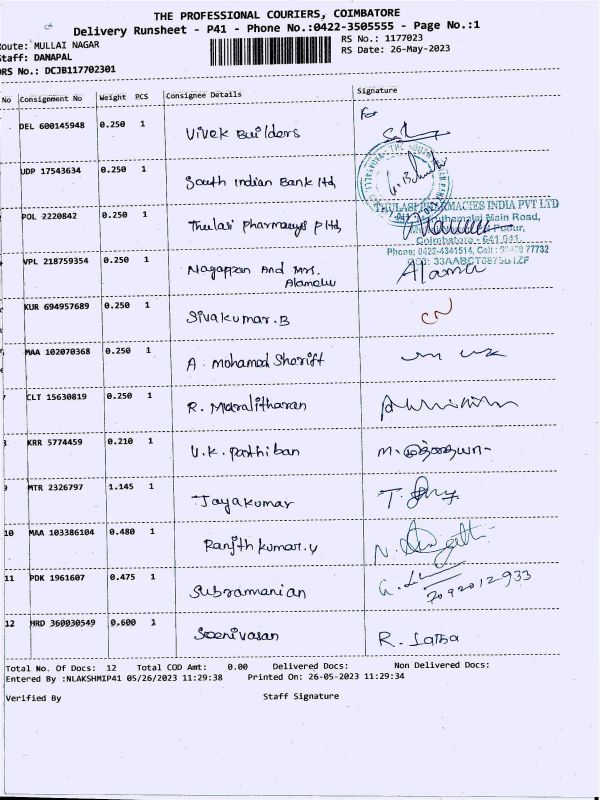 THE PROFESSIONAL COURIERS, COIMBATORE
Delivery Runsheet - P41 - Phone No.:0422-3505555 - Page No.:1
Route: MULLAI NAGAR RS No.: 1177023
Staff: DANAPAL RS Date: 26-May-2023
DRS No.: DCJB117702301
No Consignment No Weight PCS Consignee Details Signature
DEL 600145948 0.250 1 Vivek Builders For
UDP 17543634 0.250 1 South Indian Bank ltd,
POL 2220842 0.250 1 Thulasi pharmacys p ltd,
THULASI PHARMACIES INDIA PVT LTD
Main Road,
Coimbatore - 641 041.
Phone: 0422-4341514, Cell:
VPL 218759354 0.250 1 Nagappan And Mrs. Alamelu
KUR 694957689 0.250 1 Sivakumar.B CN
MAA 102070368 0.250 1 A. Mohamed Sheriff
CLT 15630819 0.250 1 R. Muralitharan
KRR 5774459 0.210 1 V.K. Parthiban
9 MTR 2326797 1.145 1 Jayakumar
10 MAA 103386104 0.480 1 Ranjith kumar.v
11 PDK 1961607 0.475 1 Subramanian
12 HRD 360030549 0.600 1 Sreenivasan R. Latha
Total No. Of Docs: 12 Total COD Amt: 0.00 Delivered Docs: Non Delivered Docs:
Entered By :NLAKSHMIP41 05/26/2023 11:29:38 Printed On: 26-05-2023 11:29:34
Verified By Staff Signature